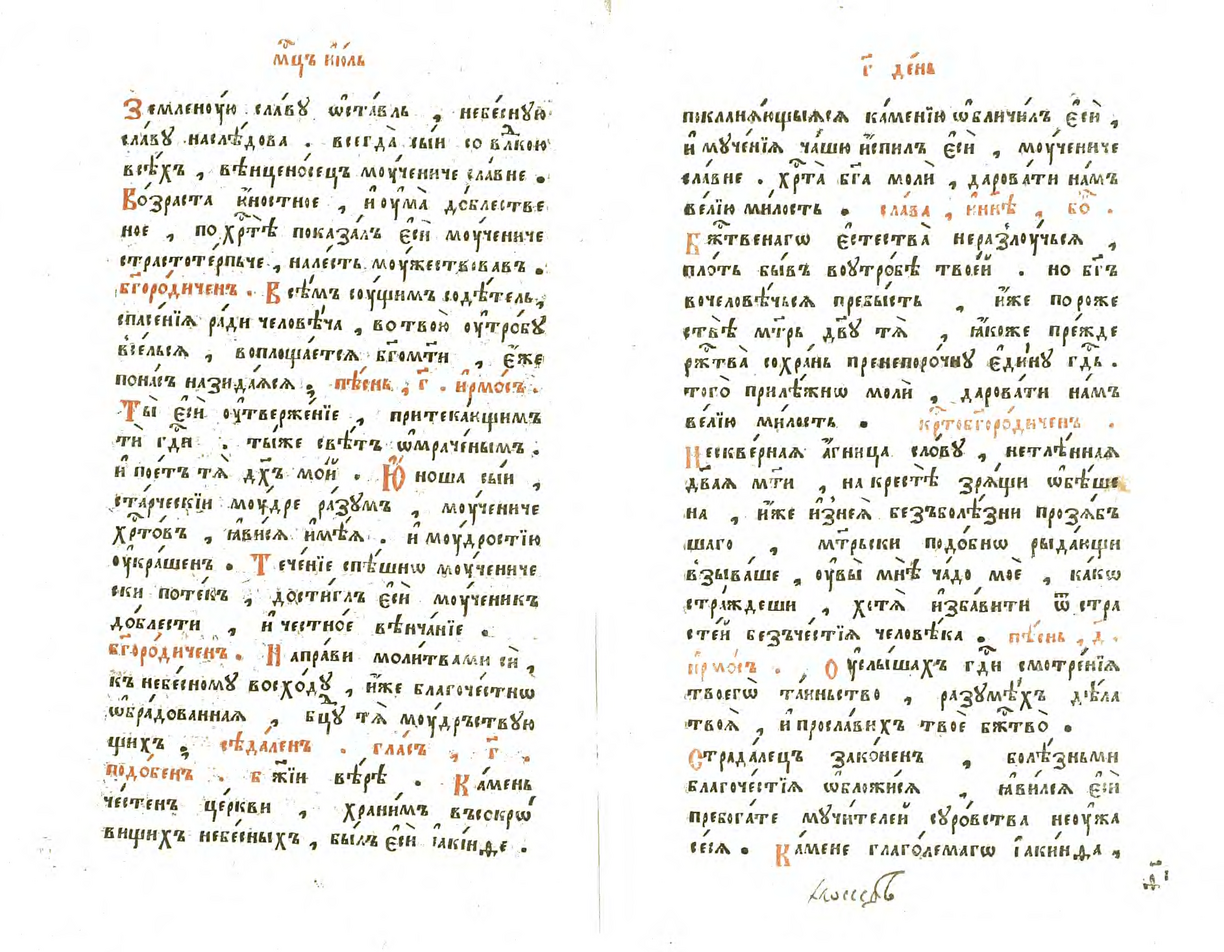 мⷭ҇цъ і҆ю́ль
Земленоу́ю сла́вꙋ ѡ҆ста́вль , небе́снꙋю
сла́вꙋ наслѣ́дова . всегда̀ сы́й со влⷣкою
всѣ́хъ , вѣнцено́сецъ моу́чениче сла́вне .
Во́зраста ю҆́ностное , и҆ оу҆ма̀ до́блестве
ное , по хрⷭ҇тѣ̀ показа́лъ є҆сѝ моу́чениче
страстоте́рпьче , на ле́сть моу́жествовавъ .
бг҃оро́диченъ . Всѣ́мъ соу́щимъ содѣ́тель ,
спасе́нїѧ ра́ди человѣ́ча , во твою̀ оу҆тро́бꙋ
все́льсѧ , воплоща́етсѧ бг҃ома́ти , є҆́же
по на́съ назида́ѧсѧ . пѣ́снь , г҃ . і҆рмо́съ .
Ты̀ є҆сѝ оу҆твержéнїе , притека́ющимъ
тѝ гдⷭ҇и . ты́же свѣ́тъ ѡ҆мраче́нымъ .
и҆ пое́тъ тѧ̀ дх҃ъ мо́й . Ю҆́ноша сы́й ,
ста́рческїи моу́дре ра́зꙋмъ , моу́чениче
хрⷭ҇то́въ , ꙗ҆ви́сѧ и҆мѣ́ѧ . и҆ моу́дростїю
оу҆кра́шенъ . Тече́нїе спѣ́шнѡ моу́чениче
ски поте́къ , дости́глъ є҆сѝ моу́ченикъ
до́блести , и҆ че́стное вѣнча́нїе .
бг҃оро́диченъ . Напра́ви моли́твами сѝ ,
къ небе́сномꙋ восхо́дꙋ , и҆́же благоче́стнѡ
ѡ҆бра́дованнаѧ , бцⷣꙋ тѧ̀ моу́дръствꙋю
щихъ . сѣда́ленъ . гла́съ , г҃ .
подо́бенъ . Бж҃їи вѣ́рѣ . Ка́мень
че́стенъ це́ркви , храни́мъ въ сокрѡ́
вищихъ небе́сныхъ , бы́лъ є҆сѝ і҆аки́нѳе .
г҃ де́нь
покланѧ́ющыѧсѧ ка́менїю ѡ҆бличи́лъ є҆сѝ ,
и҆ мꙋче́нїѧ ча́шю и҆спи́лъ є҆сѝ , моу́чениче
сла́вне . хрⷭ҇та̀ бг҃а молѝ , дарова́ти на́мъ
ве́лїю ми́лость . сла́ва , и҆ны́нѣ , бо҃ .
Бжⷭ҇твенагѡ є҆стества̀ неразлоу́чьсѧ ,
пло́ть бы́въ во оу҆тро́бѣ твое́й . но бг҃ъ
вочеловѣ́чьсѧ пребы́сть , и҆́же по роже
ствѣ̀ мт҃рь дв҃ꙋ тѧ̀ , ꙗ҆́коже пре́жде
ржⷭ҇тва̀ сохра́нь пренепоро́чнꙋ є҆ди́нꙋ гдⷭ҇ь .
того̀ приле́жнѡ молѝ , дарова́ти на́мъ
ве́лїю ми́лость . крⷭ҇тобг҃оро́диченъ .
Нескве́рнаѧ а҆́гница сло́вꙋ , нетлѣ́ннаѧ
дв҃аѧ мт҃и , на крестѣ̀ зрѧ́щи ѡ҆бѣ́ше
на , и҆́же и҆з̾ неѧ̀ безъ болѣ́зни прозѧ́бъ
шаго , мт҃рьски подо́бнѡ рыда́ющи
взыва́ше , оу҆вы̀ мнѣ̀ ча́до моѐ , ка́кѡ
стра́ждеши , хотѧ̀ и҆зба́вити ѿ стра
сте́й безъче́стїѧ человѣ́ка . пѣ́снь , д҃ .
і҆рмо́съ . Оу҆слы́шахъ гдⷭ҇и смотре́нїѧ
твоегѡ̀ та́иньство , разꙋмѣ́хъ дѣла̀
твоѧ̀ , и҆ просла́вихъ твоѐ бжⷭ҇тво̀ .
Страда́лецъ зако́ненъ , болѣ́зньми
благоче́стїѧ ѡ҆бложи́сѧ , ꙗ҆ви́лсѧ є҆сѝ
пребога́те мꙋчи́телей сꙋро́вства неоу҆жа
се́сѧ . Ка́мене глаго́лемагѡ і҆аки́нѳа ,